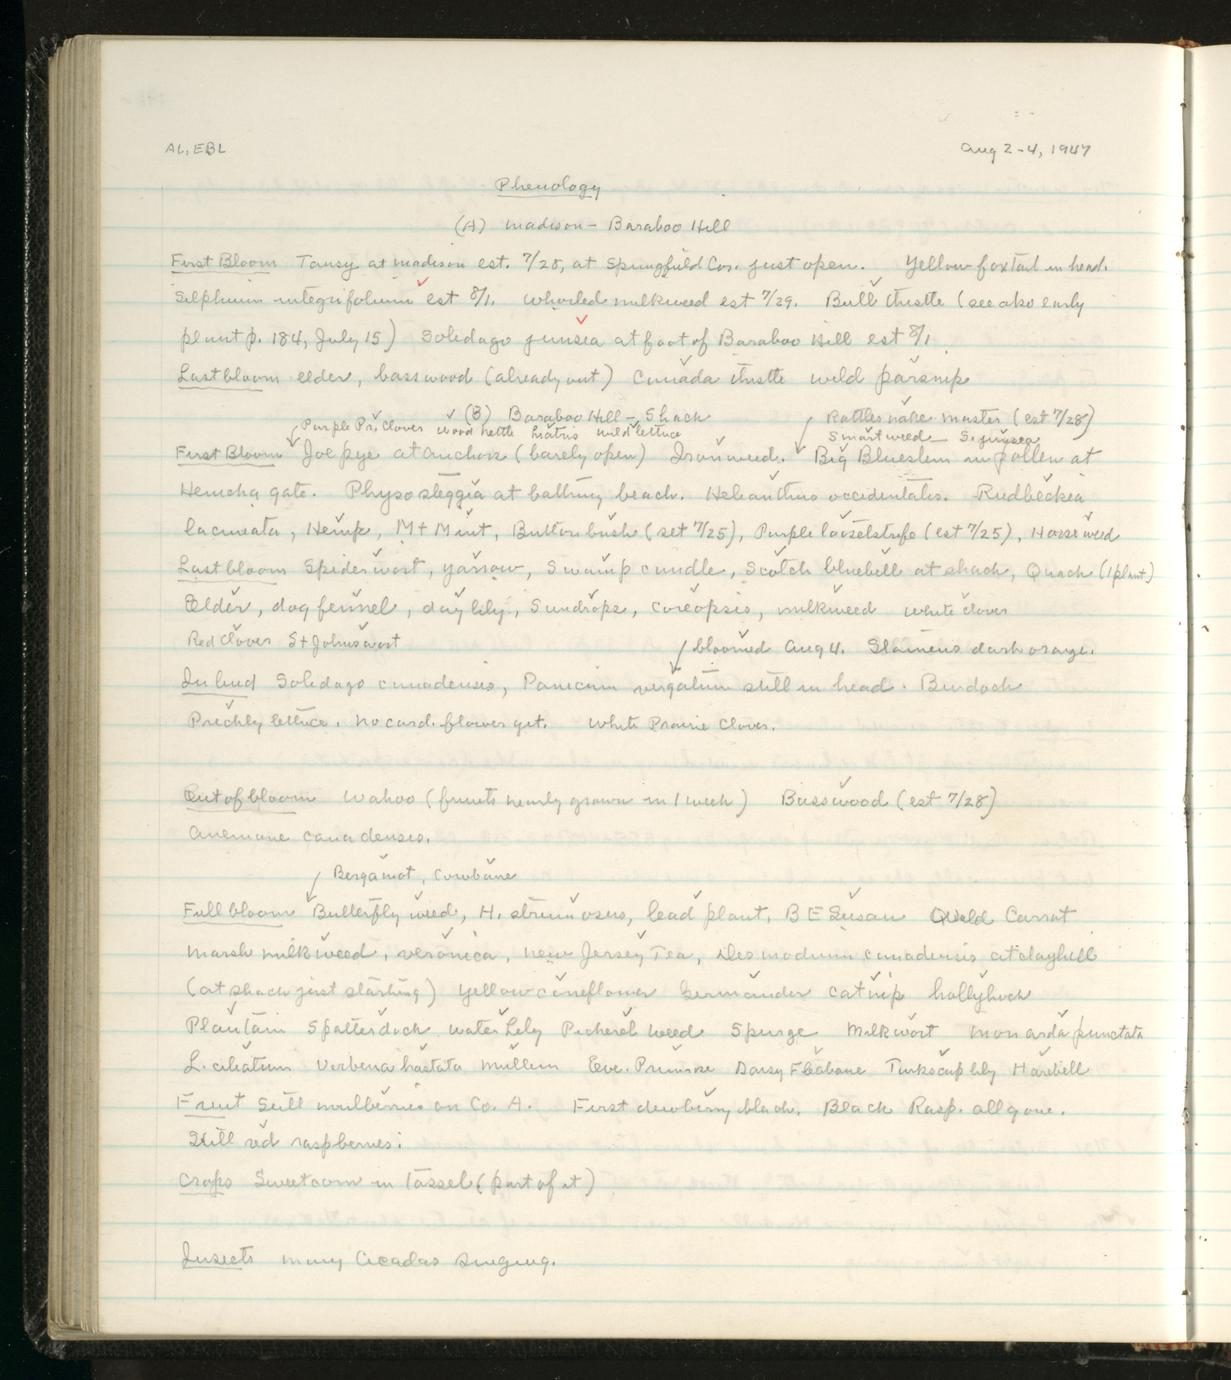 AL, EBL Aug 2-4, 1947
Phenology
(A) Madison - Baraboo Hill
First Bloom Tansy at Madison est. 7/28, at Springfield Cors. just open. Yellow foxtail in head.
Silphium integrifolium est 8/1. Whorled milkweed est 7/29. Bull thistle (see also early
plant p. 184, July 15) Solidago juncea at foot of Baraboo Hill est 8/1.
Last bloom elder, basswood (already out) Canada thistle wild parsnip
(B) Baraboo Hill - Shack
Purple Pr. Clover wood nettle liatris wild lettuce Rattlesnake master (est 7/28)
Smartweed S. juncea
First Bloom Joe pye at anchor (barely open) Ironweed. Big Bluestem in pollen at
gate. Physosteggia at bathing beach. Helianthus occidentalis. Rudbeckia
lacineata, Hemp, Mt Mint, Buttonbush (est 7/25), Purple loosetstrife (est 7/25), Horseweed
Last bloom Spiderwort, yarrow, Swamp candle, Scotch bluebell at shack, Quack (1 plant)
Elder, dog fennel, day lily, Sundrops, Coreopsis, milkweed white clover
Red Clover St Johnswort
bloomed Aug 4. Stamens dark orange.
In bud Solidago canadensis, Panicum virgatum still in head. Burdock
Prickly lettuce. No card. flower yet. White Prairie Clover.
Out of bloom Wahoo (fruits nearly grown in 1 week) Basswood (est 7/28)
Anemone canadensis.
Bergamot, Cowbane
Full bloom Butterfly weed, H. strumosus, lead plant, B E Susan Wild Carrot
Marsh milkweed, veronica, New Jersey Tea, Desmodium canadensis at clayhill
(at shack just starting) yellow coneflower Germander catnip hollyhock
Plantain Spatterdock Water Lily Pickerel weed Spurge Milkwort Monarda punctata
L. ciliatum Verbena hastata mullein Eve. Primrose Daisy Fleabane Turkscap lily Harebell
Fruit Still mulberries on Co. A. First dewberry black. Black Rasp. all gone.
Still red raspberries.
Crops Sweetcorn in tassel (part of it)
Insects many Cicadas singing.